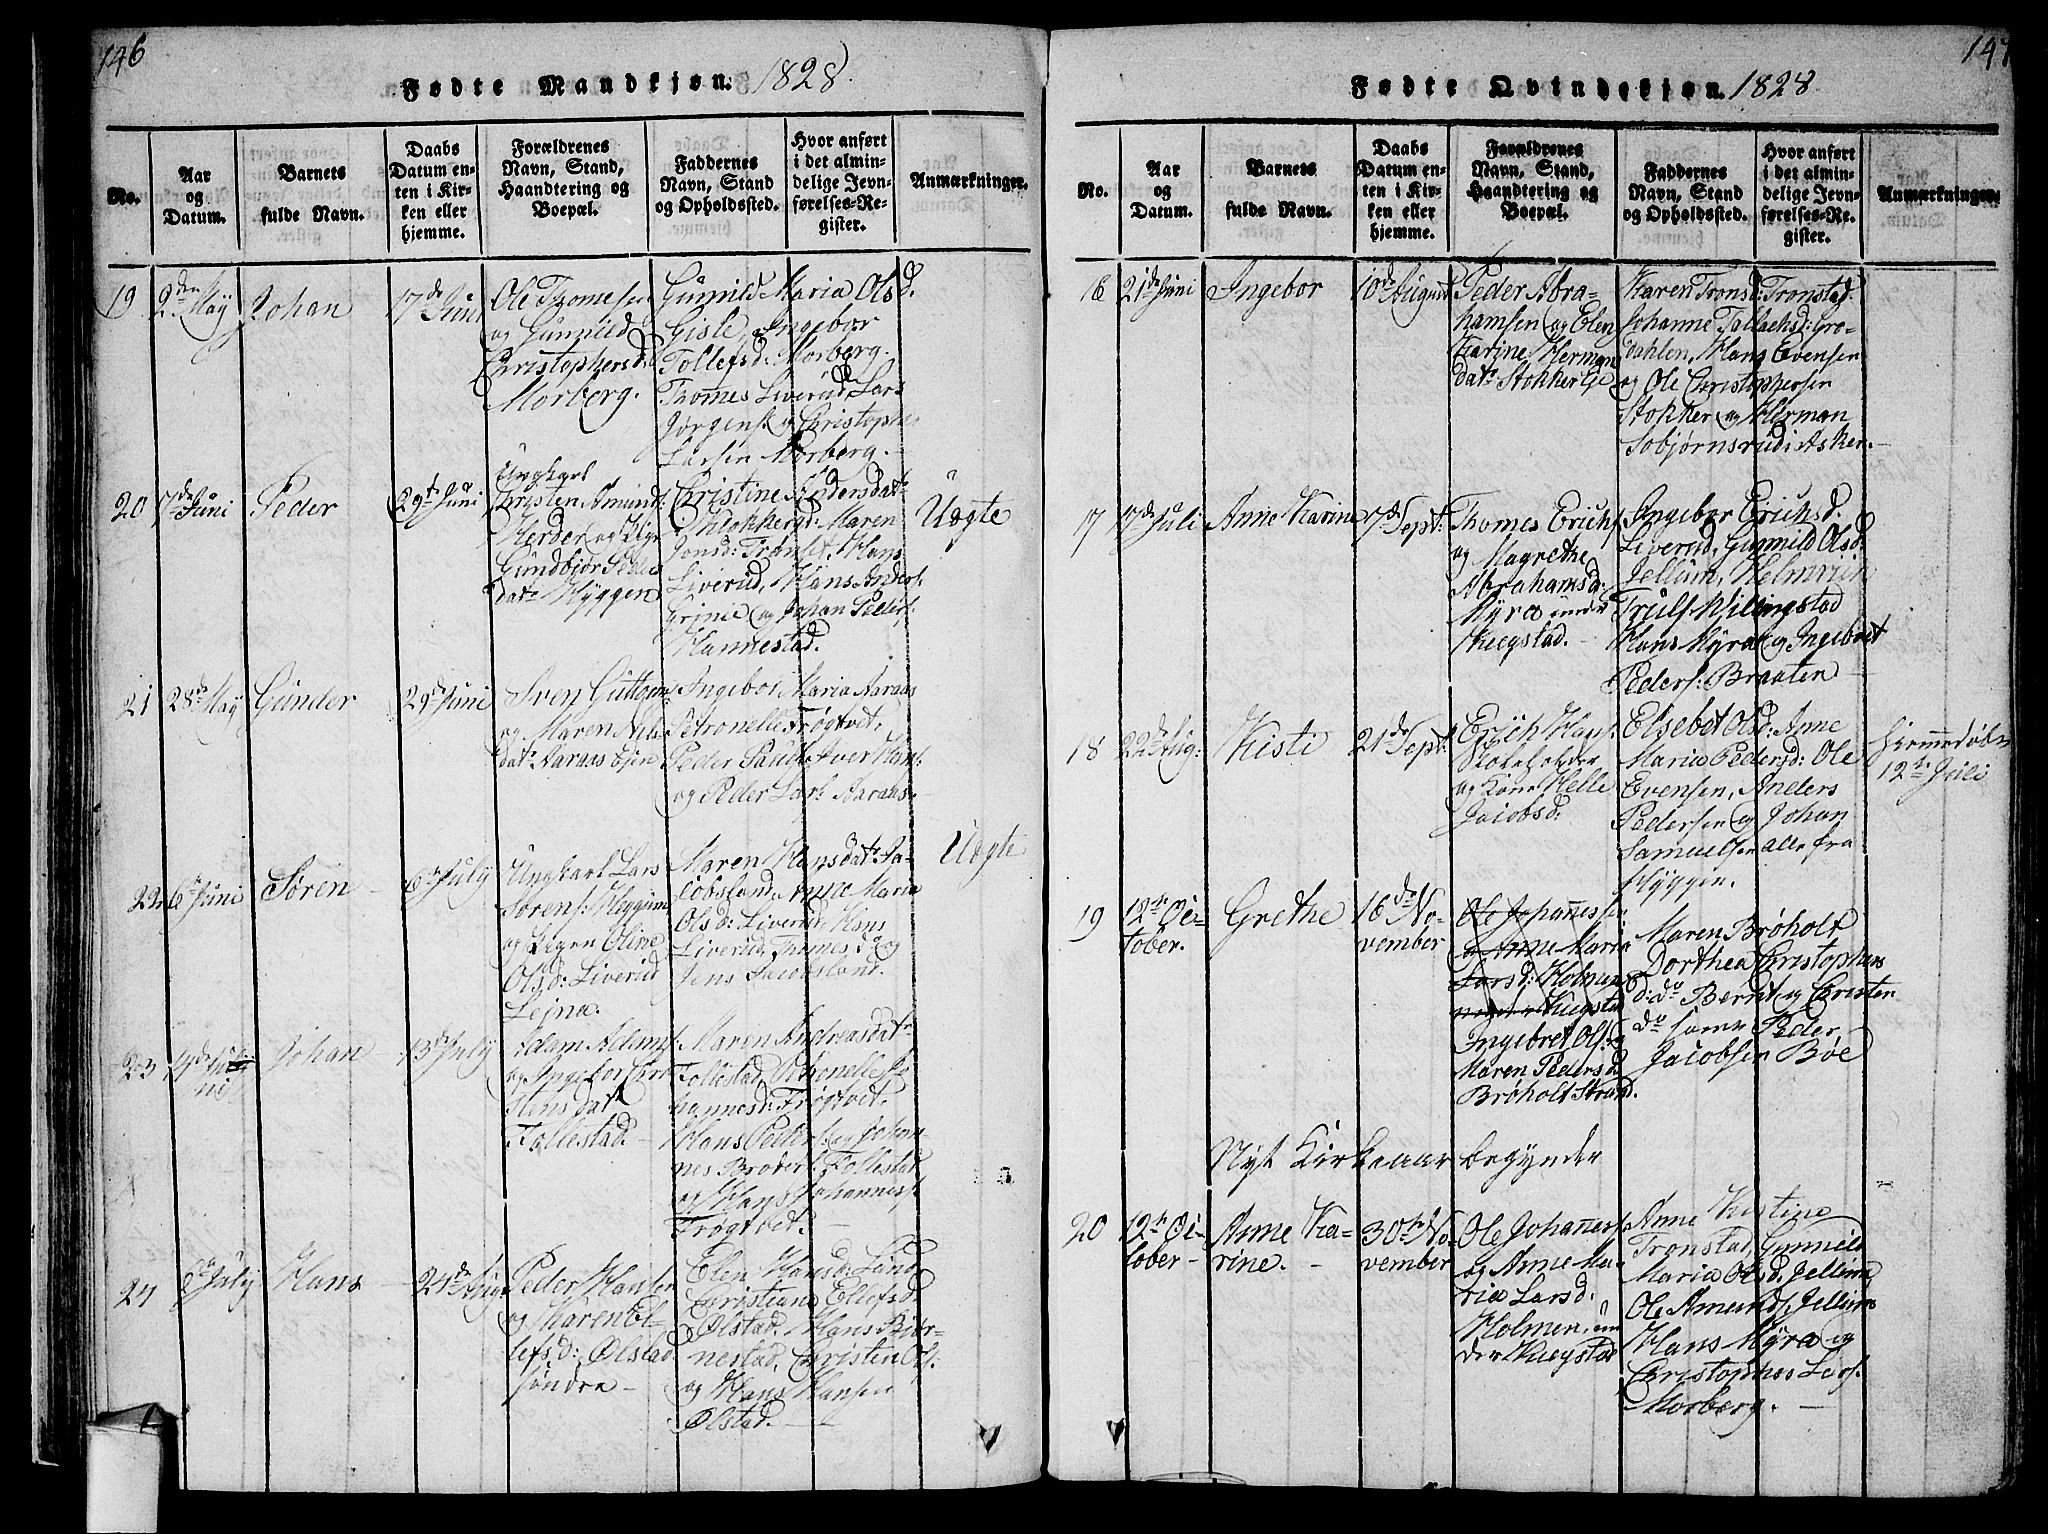 146
Fødte Mandkjøn. 1828.
No.
Aar
og
Datum.
Barnets
fulde Navn.
Daabs
Datum en-
ten i Kir-
ken eller
hjemme.
Forældrenes
Navn, Stand,
Haandtering og
Boepæl.
Faddernes
Navn, Stand
og Opholdssted.
Hvor anført
i det almin-
delige Jevn-
førelses-Re-
gister.
Anmærkninger.
19
2den May
Johan
17de Juni
Ole Thomesen
og Gunnild
Christophersd.
Morberg.
Gunild Maria Olsd.
Gisle, Ingebor
Tollefsd: Morberg.
Thomes Liverud, Lars
Jørgens. og Christopher
Larsen Morberg.
20
7de Juni
Peder
29de Juni
Ungkarl
Christen Amunds:
Herder og Pige
Gundbjør Peders
datr Hyggen
Christine Andersdatr
Klokkerud: Maren
Jonsd: Trønset, Hans
Liverud, Hans Anders.
Grine og Johan Peders.
Hannestad.
Uægte
21
28de May
Gunder
29de Juni
Sven Guttorms:
og Maren Nils
datr Aaraas Ejer
Ingebor Maria Aaraas
Petronelle Frøgtvet.
Peder Pauls. Iver Hans.
og Peder Lars. Aaraas.
22
6te Juni
Søren
6te July
Ungkarl Lars
Sørens: Heggum
og Pigen Oline
Olsd: Liverud
Lejna.
Maren Hansdatr Ja-
cobsland, Anne Maria
Olsd: Liverud, Hans
Liverud, Thomes do og
Jens Jacobsland.
Uægte
23
Juni
Johan
13de July
Adam Adams.
og Ingebor Chri
stensdatr
Follestad.
Maren Andreasdatr
Follestad, Petronelle Jo
hannesd: Frøgtvet.
Hans Peders: og Johan-
nes Broders: Follestad
og Hans Johanness.
Frøgtvet.
24
July
Hans
24de Aug.
Peder Hansen
og Karen El-
lefsd: Ølstad
søndre
Elen Hansd: Lind
Christiane Ellefsd
Ølstad. Hans Bjør-
nestad, Christen Ols.
og Hans Hansen
Ølstad.
147
Fødte Qvindekjøn. 1828
No.
Aar
og
Datum.
Barnets
fulde Navn.
Daabs
Datum en-
ten i Kir-
ken eller
hjemme.
Forældrenes
Navn, Stand,
Haandtering og
Boepæl.
Faddernes
Navn, Stand
og Opholdssted.
Hvor anført
i det almin-
delige Jevn-
førelses-Re-
gister.
Anmærkninger.
16
21de Juni
Ingebor
10de August
Peder Abra-
hamsen og Elen
Karine Herman
datr Stokker Eje
Karen Tronsd: Tronstad.
Johanne Tollachsd: Gro-
dahlen, Hans Evensen
og Ole Christophersen
Stokker og Herman
Sobjørnsrud i Asker.
17
17de Juli
Anne Karine
7de Sept:
Thomes Erichs.
og Magrethe
Abrahamsd:
Myra under
Huegstad.
Ingebor Erichsd.
Liverud, Gunnild Olsd.
Jellum, Helmrich
Truls. Willingstad
Hans Myra og Ingebret
Peders: Braaten
18
22de Aug:
Kisti
21de Sept:
Erich Hans.
og Kone Helle
Jacobsd.
Elsebet Olsd: Anne
Maria Pedersd: Ole
Evensen, Anders
Pedersen og Johan
Samuelsen alle fra
Hyggen.
hiemmedøbt
12te Juli
19
12te Oc-
tober.
Grethe
16de No-
vember
Ole Johannessen
og Anne Maria
Larsd: Holmen
under Huegstad
Ingebret Ols: og
Maren Pedersd
Brøholt Strand.
Maren Brøholt
Dorthea Christophers
d: do Bernt og Christen
do samt Peder
Jacobsen Bøe
Nyt Kirkeaar begynder
20
12te Oc-
tober
Anne Ka-
rine.
30te No-
vember
Ole Johanness.
og Anne Ma-
ria Larsd.
Holmen, un
der Huegstad
Anne Kistine
Tronstad, Gunnild
Maria Olsd. Jellum
Ole Amunds. Jellum
Hans Myra og
Christopher Lars.
Morberg.